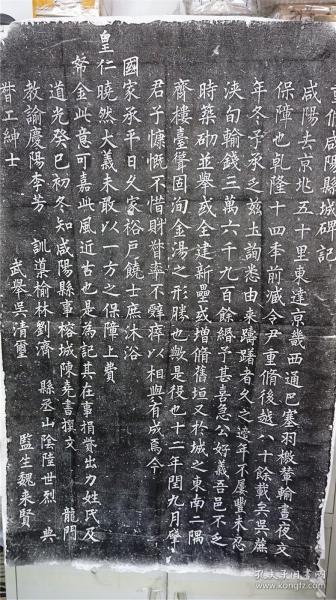 重脩咸陽縣城碑記
咸陽去京兆五十里東達京畿西通巴塞羽檄輦輸晝夜交
保障也乾隆十四季前咸令尹重脩後越八十餘載矣吳蕉
年冬予承之茲土詢悉由来躊躇者久之迹年不屢豐未忍
浹旬輸錢三萬六千九百餘緡予甚喜急公好義吾邑不乏
時築砌並舉或全建新壘或增脩舊垣又於城之東南二隅
齊樓臺聳固洵金湯之形勝也歟是役也十二年閏九月
君子慷慨不惜財貲率不辭瘁以相與有成焉今
國家承平日久家裕戶饒士庶沐浴
皇仁曉然大義未敢以一方之保障上費
帑金此意可嘉此風近古也是為記其在事捐貲出力姓氏及
道光癸巳初冬知咸陽縣事榕城陳堯書撰文 龍門
教諭慶陽李芳 訓導榆林劉濟 縣丞山陰陸世烈 典
武舉吳清璽 監生魏来賢
督工紳士